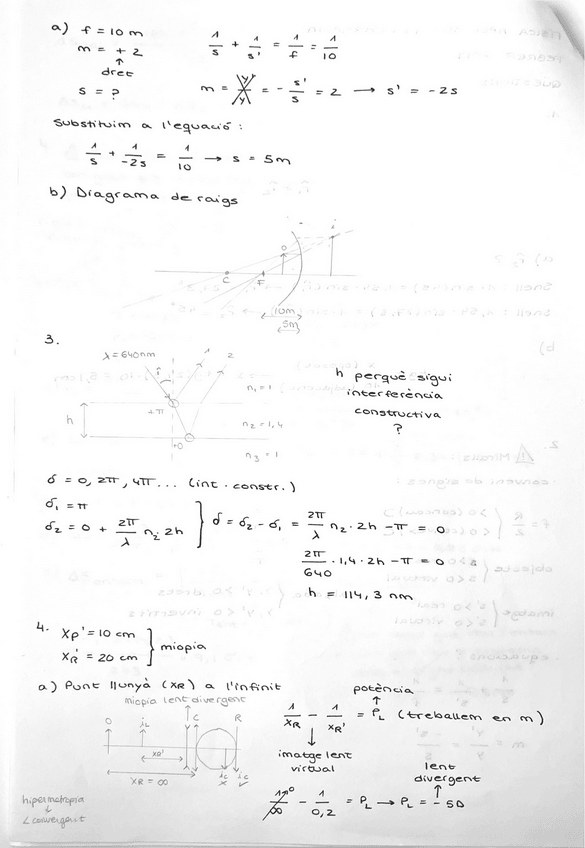 a) f = 10 m
m = + 2
↑
dret
s = ?
1/s + 1/s' = 1/f = 1/10
m = y'/y = - s'/s = 2 → s' = -2s
Substituim a l'equació :
1/s + 1/-2s = 1/10 → s = 5m
b) Diagrama de raigs
o
i
C
F
10m
5m
3.
λ = 640nm
1
2
î
n₁ = 1
2π
h
n₂ = 1,4
+0
n₃ = 1
h perquè sigui
interferència
constructiva
?
δ = 0, 2π, 4π... (int. constr.)
δ₁ = π
δ₂ = 0 + 2π/λ n₂· 2h
} δ = δ₂ - δ₁ = 2π/λ n₂· 2h - π = 0
2π/640 · 1,4 · 2h - π = 0
h = 114,3 nm
4.
Xp' = 10 cm
XR' = 20 cm
} miopia
a) Punt llunyà (XR) a l'infinit
miopia lent divergent
O
iL
C
R
XR'
XR = ∞
ic
x
ic
✓
potència
↑
1/XR - 1/XR' = PL (treballem en m)
↓
imatge lent
virtual
lent
divergent
↑
1/∞ ⁰ - 1/0,2 = PL → PL = -5D
hipermetropia
↓
L convergent